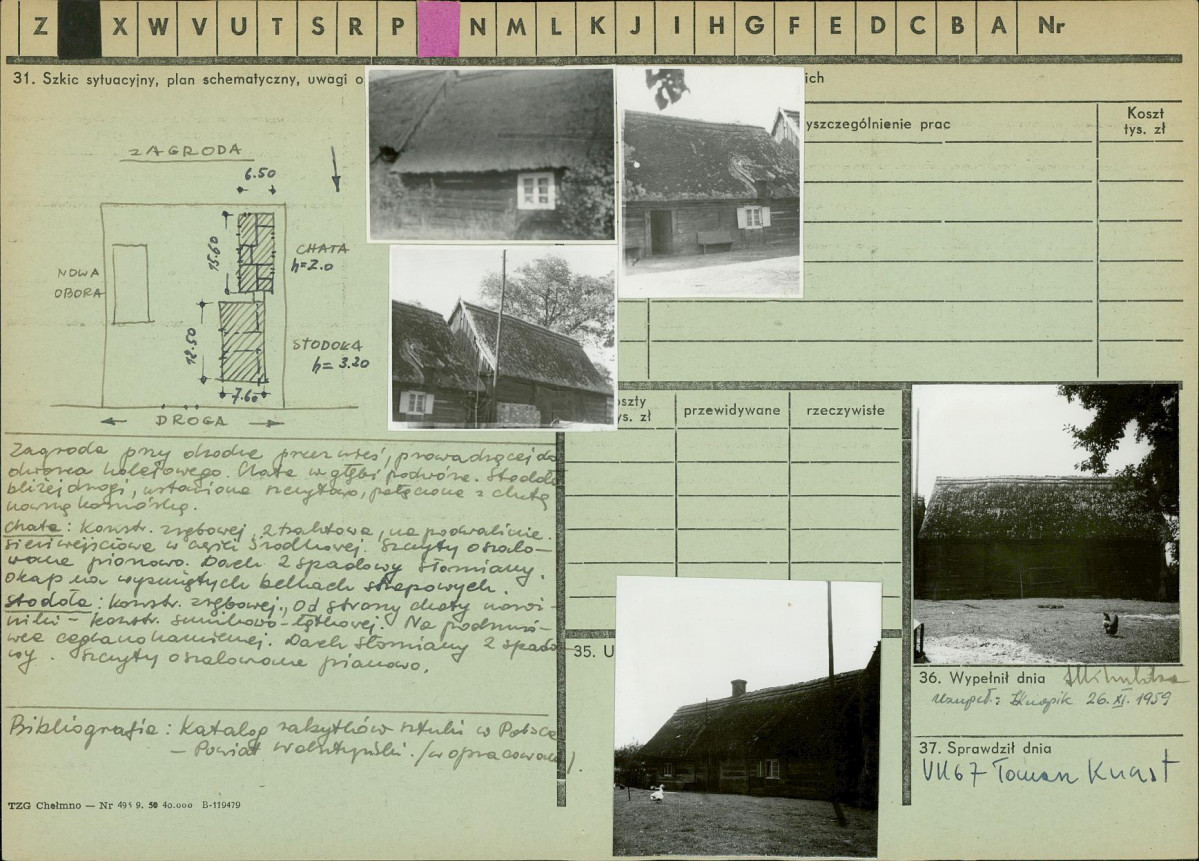 Z X W V U T S R P N M L K J I H G F E D C B A Nr
31. Szkic sytuacyjny, plan schematyczny, uwagi o
ich
yszczególnienie prac
Koszt
tys. zł
ZAGRODA
6.50
15.60
CHATA
h=2.0
NOWA
OBORA
12.50
STODOŁA
h=3.20
7.60
DROGA
oszty
ys. zł
przewidywane
rzeczywiste
Zagroda przy drodze przez wieś, prowadzącej do
dworca kolejowego. Chata w głębi podwórza. Stodoła
bliżej drogi, ustawiona szczytowo, połączona z chatą
chata: konstr. zrębowej, 2 traktowa, na podwalinie.
Sień wejściowa w części środkowej. Szczyty oszalo-
wane pionowo. Dach 2 spadowy słomiany,
okap na wysuniętych belkach stropowych.
stodoła: konstr. zrębowej, Od strony chaty nowsi-
konstr. sumikowo-łątkowej. Na podmuró-
wce ceglano kamiennej. Dach słomiany 2 spado-
wy. Szczyty oszalowane pionowo.
35. U
Bibliografia: Katalog zabytków sztuki w Polsce
- Powiat wolsztyński. (w opracowaniu).
36. Wypełnił dnia
uzupeł.: Knapik 26.XI.1959
37. Sprawdził dnia
VII 67 Tomasz Knast
TZG Chełmno — Nr 495 9. 50 40.000 B-119479